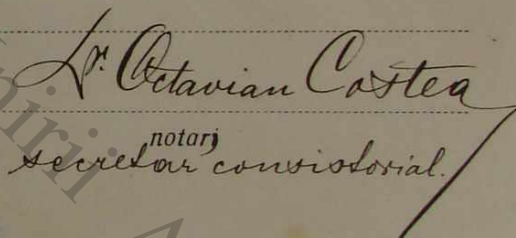 Dr. Octavian Costea
notarj
secretar consistorial.